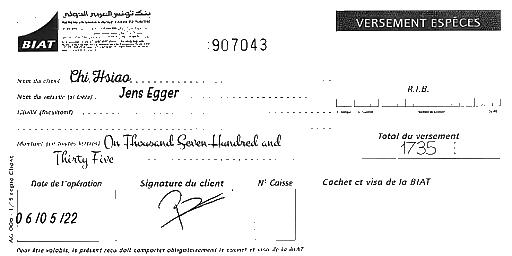 بنك تونس العربي الدولي
BIAT
VERSEMENT ESPÈCES
:907043
Nom du client Chi, Hsiao
Nom du verseur (si tiers) Jens Egger
R.I.B.
Libellé (facultatif)
Montant (en toutes lettres) On Thousand Seven Hundred and
Thirty Five
Total du versement
1735
Date de l'opération
Signature du client
N° Caisse
Cachet et visa de la BIAT
06/05/22
Pour être valable, le présent reçu doit comporter obligatoirement le cachet et visa de la BIAT